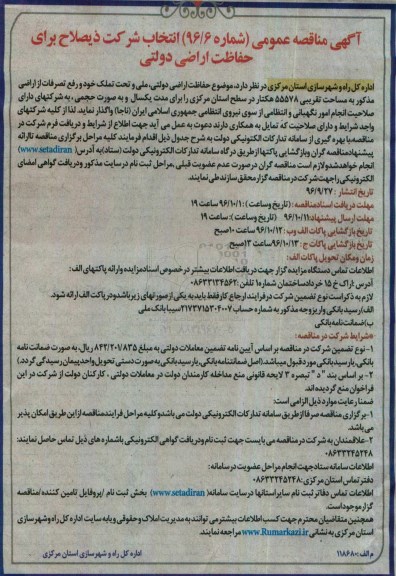 آگهی مناقصه عمومی (شماره ۹۶/۶) انتخاب شرکت ذیصلاح برای
حفاظت اراضی دولتی
اداره کل راه و شهرسازی استان مرکزی در نظر دارد، موضوع حفاظت اراضی دولتی، ملی و تحت تملک خود و رفع تصرفات از اراضی
مذکور به مساحت تقریبی ۵۵۵۷۸ هکتار در سطح استان مرکزی را برای مدت یکسال و به صورت حجمی، به شرکتهای دارای
صلاحیت انجام امور نگهبانی و انتظامی از سوی نیروی انتظامی جمهوری اسلامی ایران (ناجا) واگذار نماید. لذا از کلیه شرکتهای
واجد شرایط و دارای صلاحیت که تمایل به همکاری دارند دعوت به عمل می آید جهت اطلاع از شرایط و دریافت فرم شرکت در
مناقصه با بهره گیری از سامانه تدارکات الکترونیکی دولت به شرح جدول ذیل اقدام فرمایند کلیه مراحل برگزاری مناقصه تا ارائه
پیشنهاد مناقصه گران و بازگشایی پاکتها از طریق درگاه سامانه تدارکات الکترونیکی دولت (ستاد) به آدرس (www.setadiran)
انجام خواهد شد و لازم است مناقصه گران در صورت عدم عضویت قبلی، مراحل ثبت نام در سایت مذکور و دریافت گواهی امضای
الکترونیکی را جهت شرکت در مناقصه گزار محقق سازند طی نمایند.
تاریخ انتشار : ۹۶/۹/۲۷
مهلت دریافت اسناد مناقصه: (تاریخ وساعت): ۹۶/۱۰/۱ ساعت ۱۹
مهلت ارسال پیشنهاد: ۹۶/۱۰/۱۱ (تاریخ وساعت): ساعت ۱۹
تاریخ بازگشایی پاکات الف و ب: ۹۶/۱۰/۱۲ ساعت ۱۰ صبح
تاریخ بازگشایی پاکات ج: ۹۶/۱۰/۱۳ ساعت ۱۲ صبح
زمان ومکان تحویل پاکات الف:
اطلاعات تماس دستگاه مزایده گزار جهت دریافت اطلاعات بیشتر در خصوص اسناد مزایده وارائه پاکتهای الف:
آدرس اراک خ ۱۵ خرداد ساختمان شماره ۱ تلفن: ۰۸۶۳۳۱۳۴۵۶۲
لازم به ذکر است نوع تضمین شرکت در فرایند ارجاع کار فقط باید به یکی از صورتهای زیر باشد و در پاکت الف ارائه شود.
الف) رسید بانکی واریز وجه مذکور به شماره حساب ۲۱۷۳۷۱۵۲۰۴۰۰۷ سیبا بانک ملی
ب) ضمانت نامه بانکی
«شرایط شرکت در مناقصه»:
۱- نوع تضمین شرکت در مناقصه بر اساس آیین نامه تضمین معاملات دولتی به مبلغ ۸۴۲/۲۰۱/۸۳۵ ریال، به صورت ضمانت نامه
بانکی، یا رسید بانکی مورد قبول میباشد، (اصل ضمانتنامه بانکی، یا رسید بانکی به صورت دستی تحویل واحد پیمان رسیدگی گردد.)
۲- بر اساس بند "د" تبصره ۳ لایحه قانونی منع مداخله کارمندان دولت در معاملات دولتی ، کارکنان دولت از شرکت در این
فراخوان منع گردیده اند.
ضمنا رعایت موارد ذیل الزامی است:
۱- برگزاری مناقصه صرفا از طریق سامانه تدارکات الکترونیکی دولت می باشد و کلیه مراحل فرایند مناقصه از این طریق امکان پذیر
می باشد.
۲- علاقمندان به شرکت در مناقصه می بایست جهت ثبت نام و دریافت گواهی الکترونیکی با شماره های ذیل تماس حاصل نمایند:
۰۸۶۳۳۲۴۵۲۴۸
اطلاعات سامانه ستاد جهت انجام مراحل عضویت در سامانه:
دفتر تماس استان مرکزی: ۰۸۶۳۳۲۴۵۲۴۸
اطلاعات تماس دفاتر ثبت نام سایر استانها در سایت سامانه (www.setadiran) بخش ثبت نام /پروفایل تامین کننده /مناقصه
گزار موجود است.
همچنین متقاضیان محترم جهت کسب اطلاعات بیشتر می توانند به مدیریت املاک و حقوقی و یا به سایت اداره کل راه و شهرسازی
استان مرکزی به نشانی www.Rumarkazi.ir مراجعه نمایند
م الف: ۱۱۸۶۸۰ اداره کل راه و شهرسازی استان مرکزی